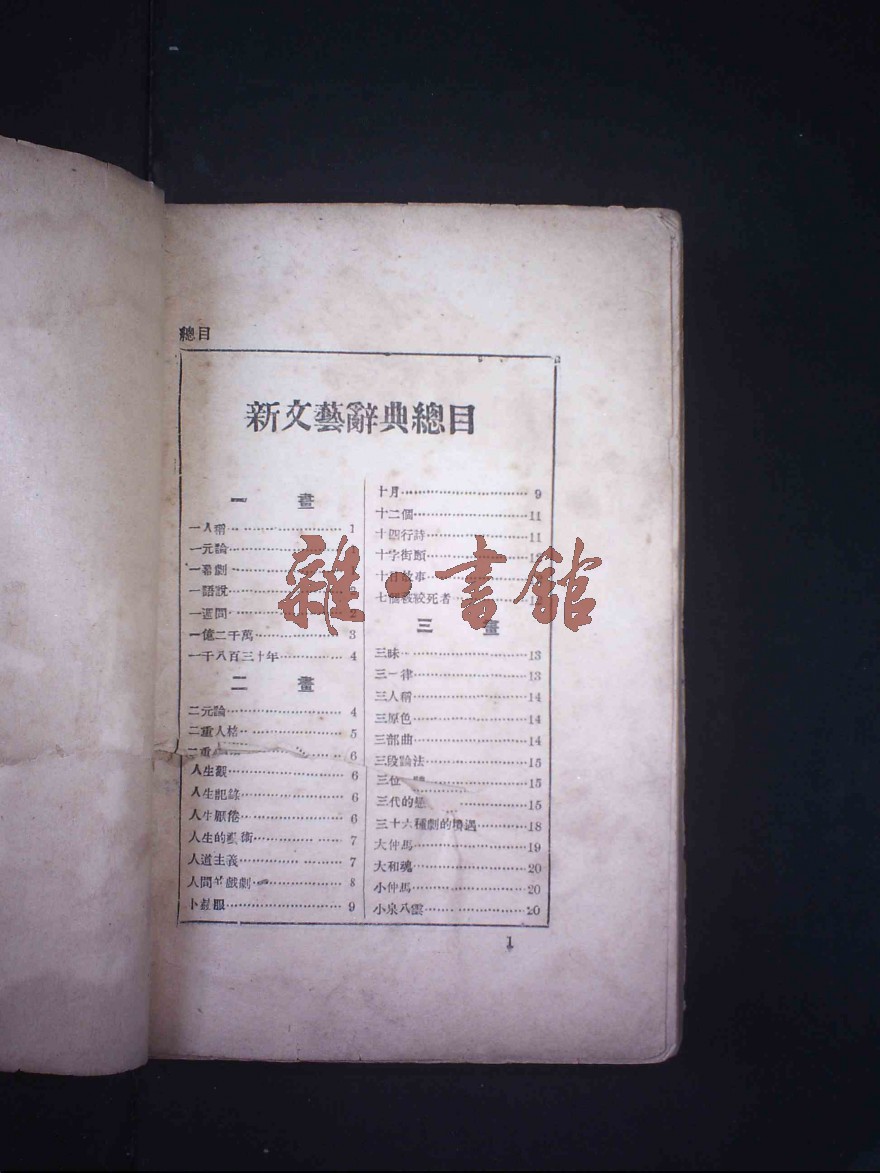 總目
新文藝辭典總目
一 畫
一人稱 1
一元論 1
一幕劇
一語說 2
一週間 2
一億二千萬 3
一千八百三十年 4
二 畫
二元論 4
二重人格 5
二重 6
人生觀 6
人生記錄 6
人生厭倦 6
人生的藝術 7
人道主義 7
人間 戲劇 8
卜 服 9
十月 9
十二個 11
十四行詩 11
十字街頭 12
十日故事
七個被絞死者 12
三 畫
三昧 13
三一律 13
三人稱 14
三原色 14
三部曲 14
三段論法 15
三位一體 15
三代的戀 15
三十六種劇的境遇 18
大仲馬 19
大和魂 20
小仲馬 20
小泉八雲 20
1
雜·書館